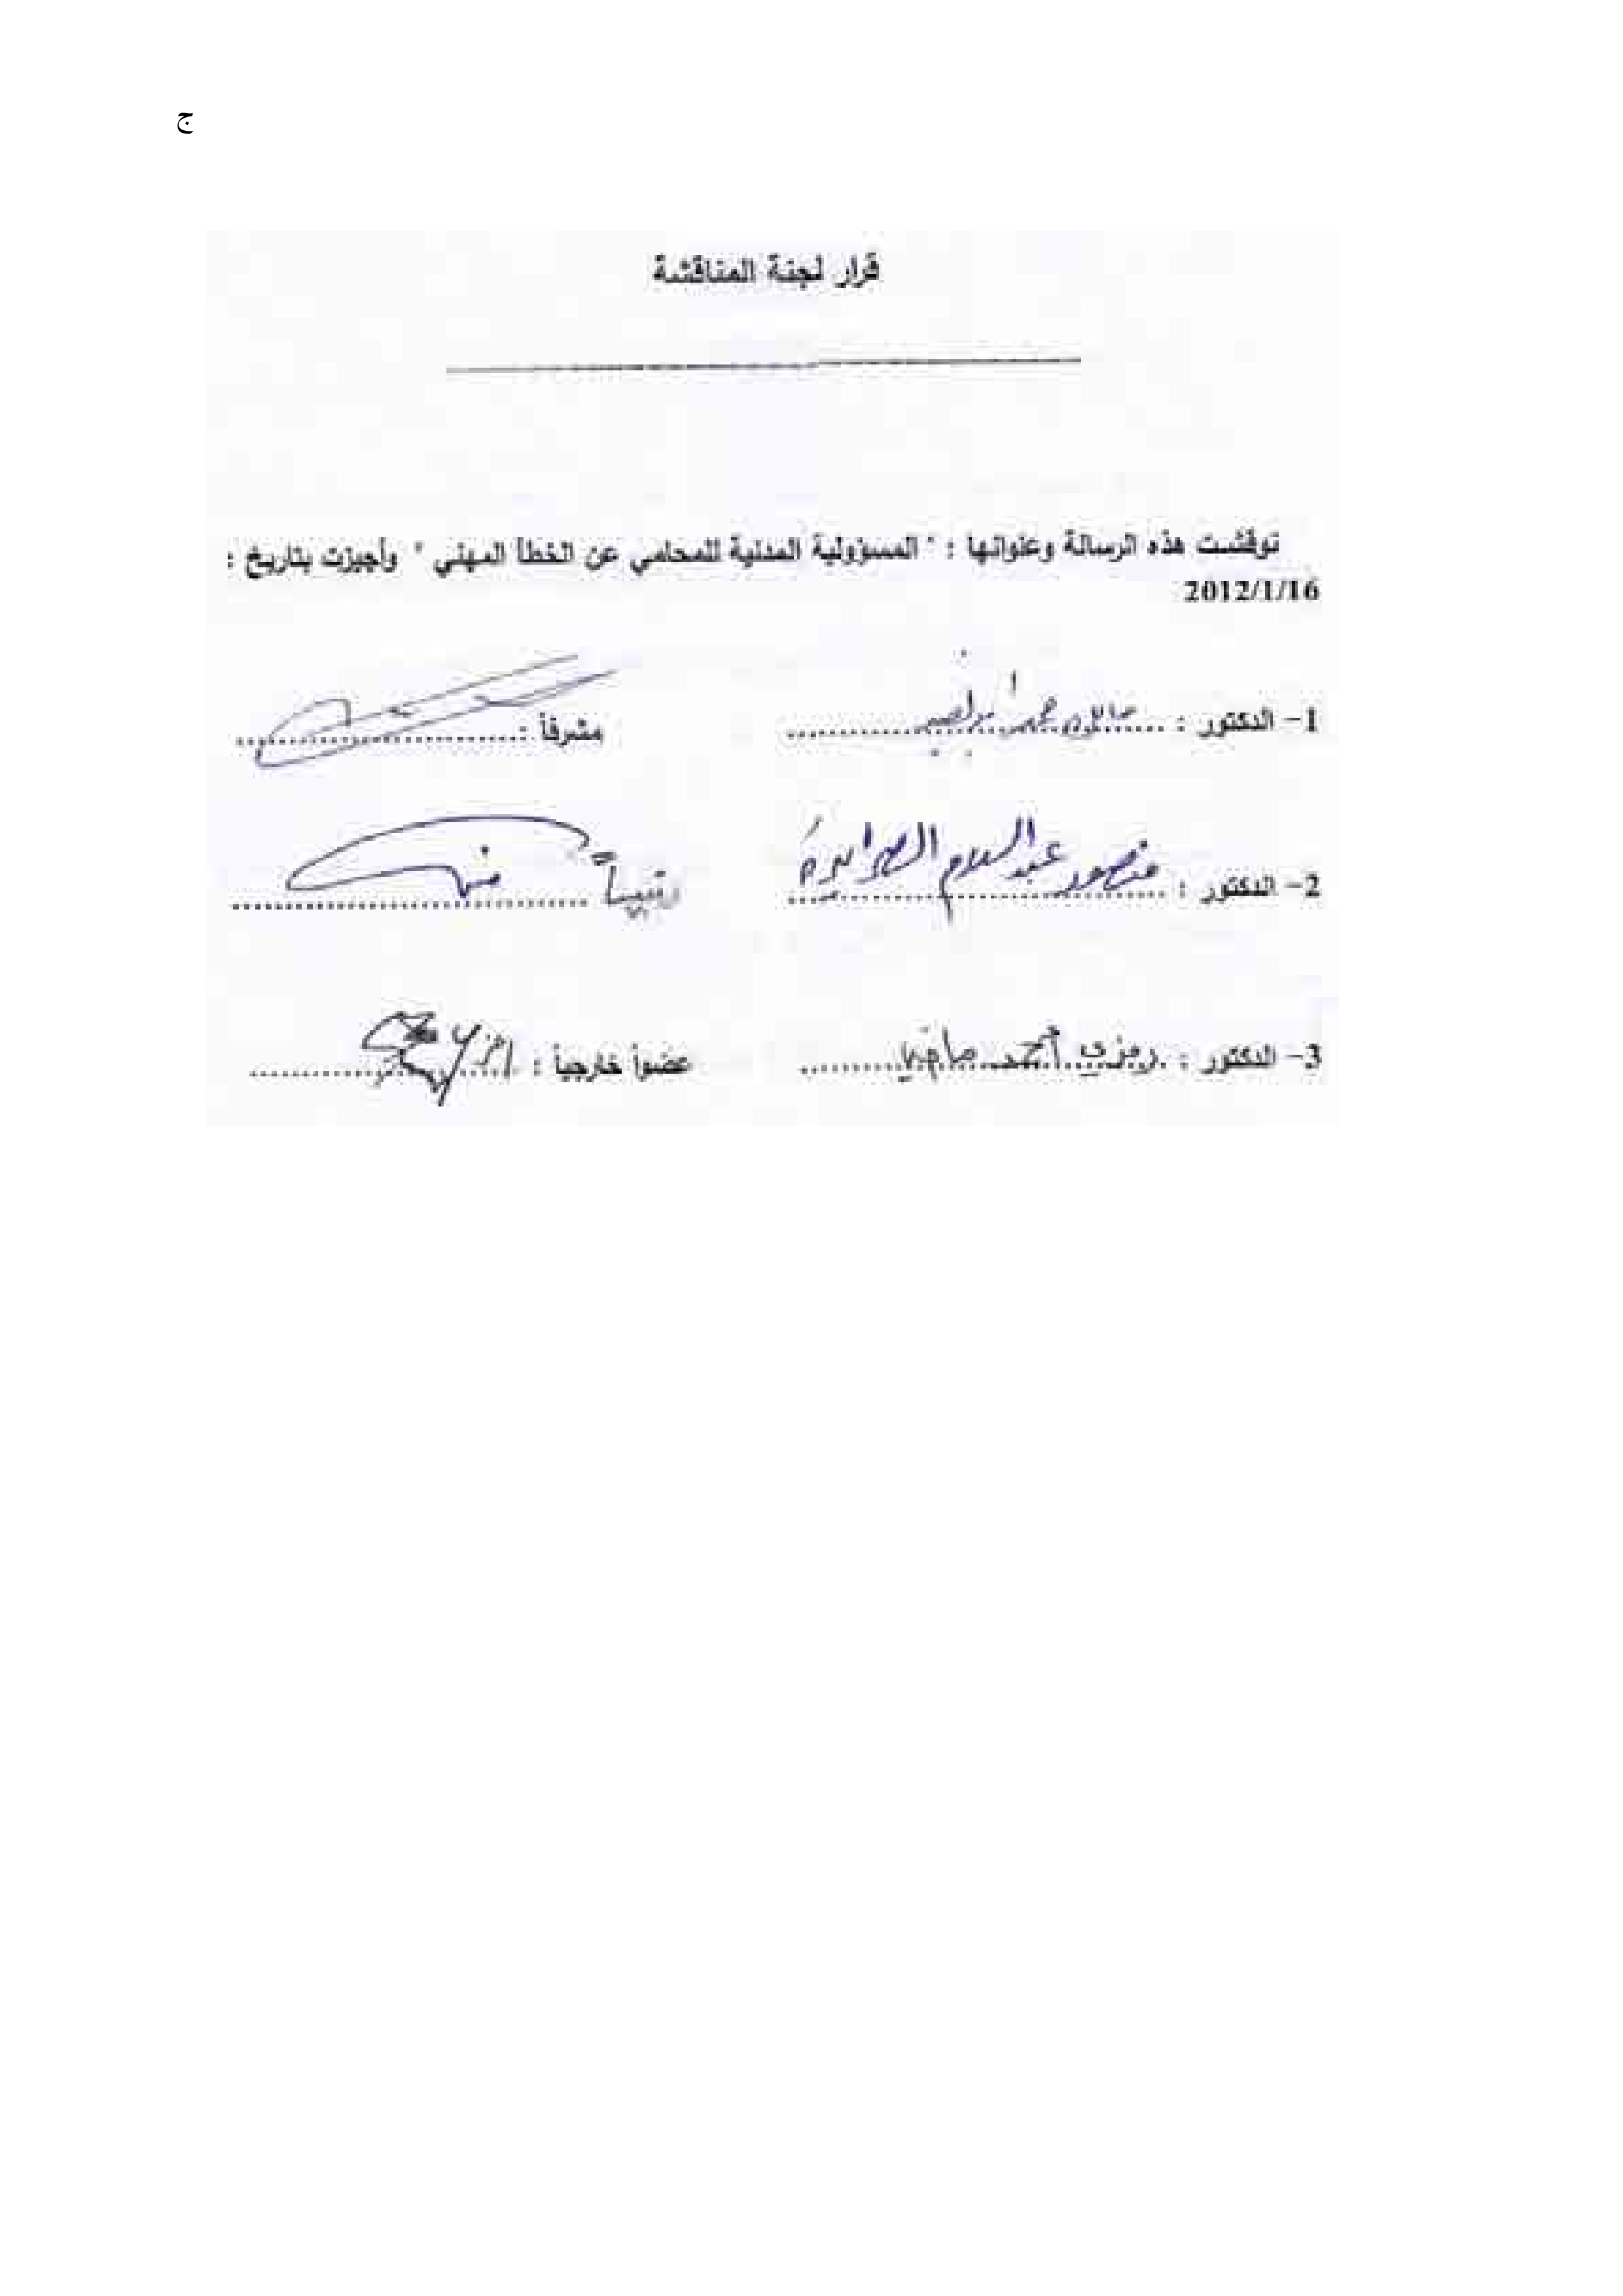 ج
قرار لجنة المناقشة
نوقشت هذه الرسالة وعنوانها : " المسؤولية المدنية للمحامي عن الخطأ المهني " وأجيزت بتاريخ :
2012/1/16
1- الدكتور : محمد أبو مشرفاً :
2- الدكتور : منصور عبد السلام الصرايرة رئيساً
3- الدكتور : رمزي أحمد ماضي عضواً خارجياً :